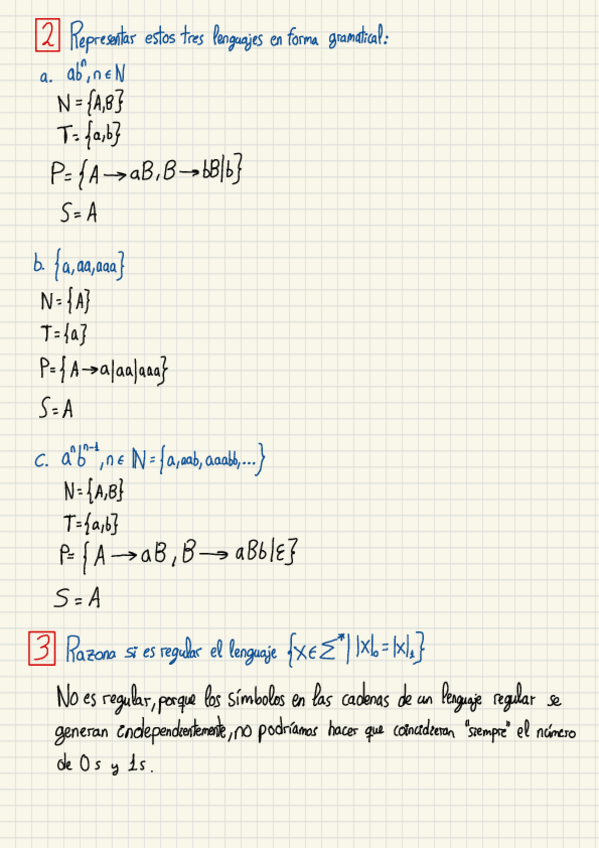 2 Representar estos tres lenguajes en forma gramatical:
a. abⁿ, n ∈ N
N = {A,B}
T = {a,b}
P = {A → aB, B → bB|b}
S = A
b. {a, aa, aaa}
N = {A}
T = {a}
P = {A → a|aa|aaa}
S = A
c. aⁿbⁿ⁻¹, n ∈ ℕ = {a, aab, aaabb, ...}
N = {A,B}
T = {a,b}
P = {A → aB, B → aBb|ε}
S = A
3 Razona si es regular el lenguaje {x ∈ Σ* | |x|₀ = |x|₁}
No es regular, porque los símbolos en las cadenas de un lenguaje regular se
generan independientemente, no podríamos hacer que coincidieran "siempre" el número
de 0s y 1s.